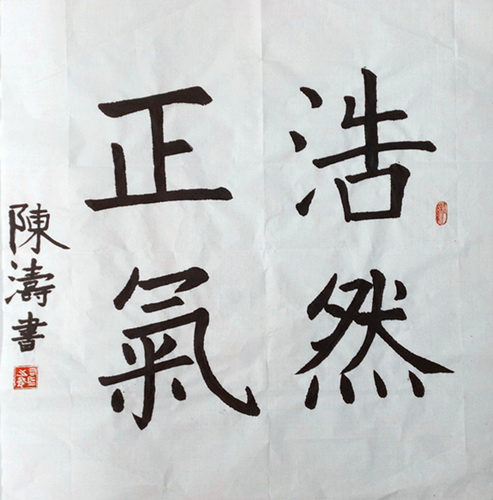 浩然
正氣
陳濤書